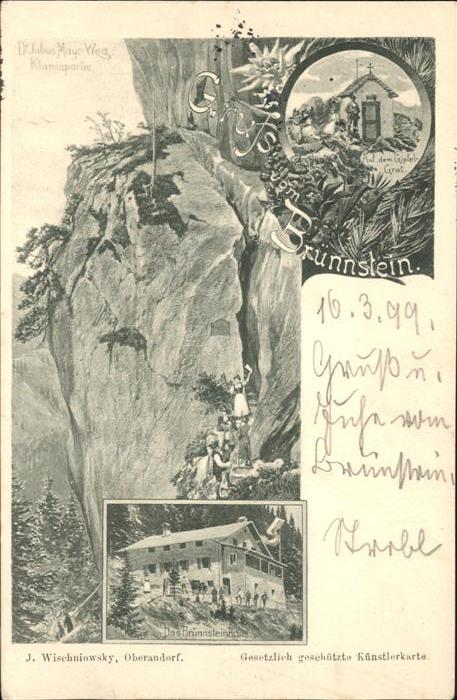 Dr. Julius Mayr-Weg,
Klammpartie
Gruss vom
Brünnstein.
Auf dem Gipfel-
Grat.
16.3.99.
Gruß u.
vom
Brünstein,
Strobl
Das Brünnsteinhaus
J. Wischniowsky, Oberaudorf.
Gesetzlich geschützte Künstlerkarte.